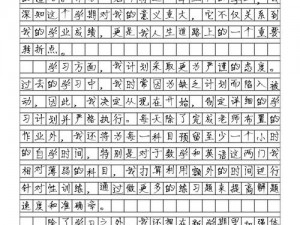 深知这个学期对我的意义重大，它不仅关系到
我的学业成绩，更是我人生道路上的一个重要
转折点。
学习方面，我计划采取更为严谨的态度。
过去的学习中，我时常因为缺乏计划而陷入被
动，因此，我决定从现在开始，制定详细的学
习计划并严格执行。每天除了完成老师布置的
作业外，我还将为每一科目预留至少一个小时
的自学时间，特别是对于数学和英语这两门我
相对薄弱的科目，我打算利用额外的时间进行
针对性训练，通过做更多的练习题来提高解题
速度和准确率。
除了学习之外，我还